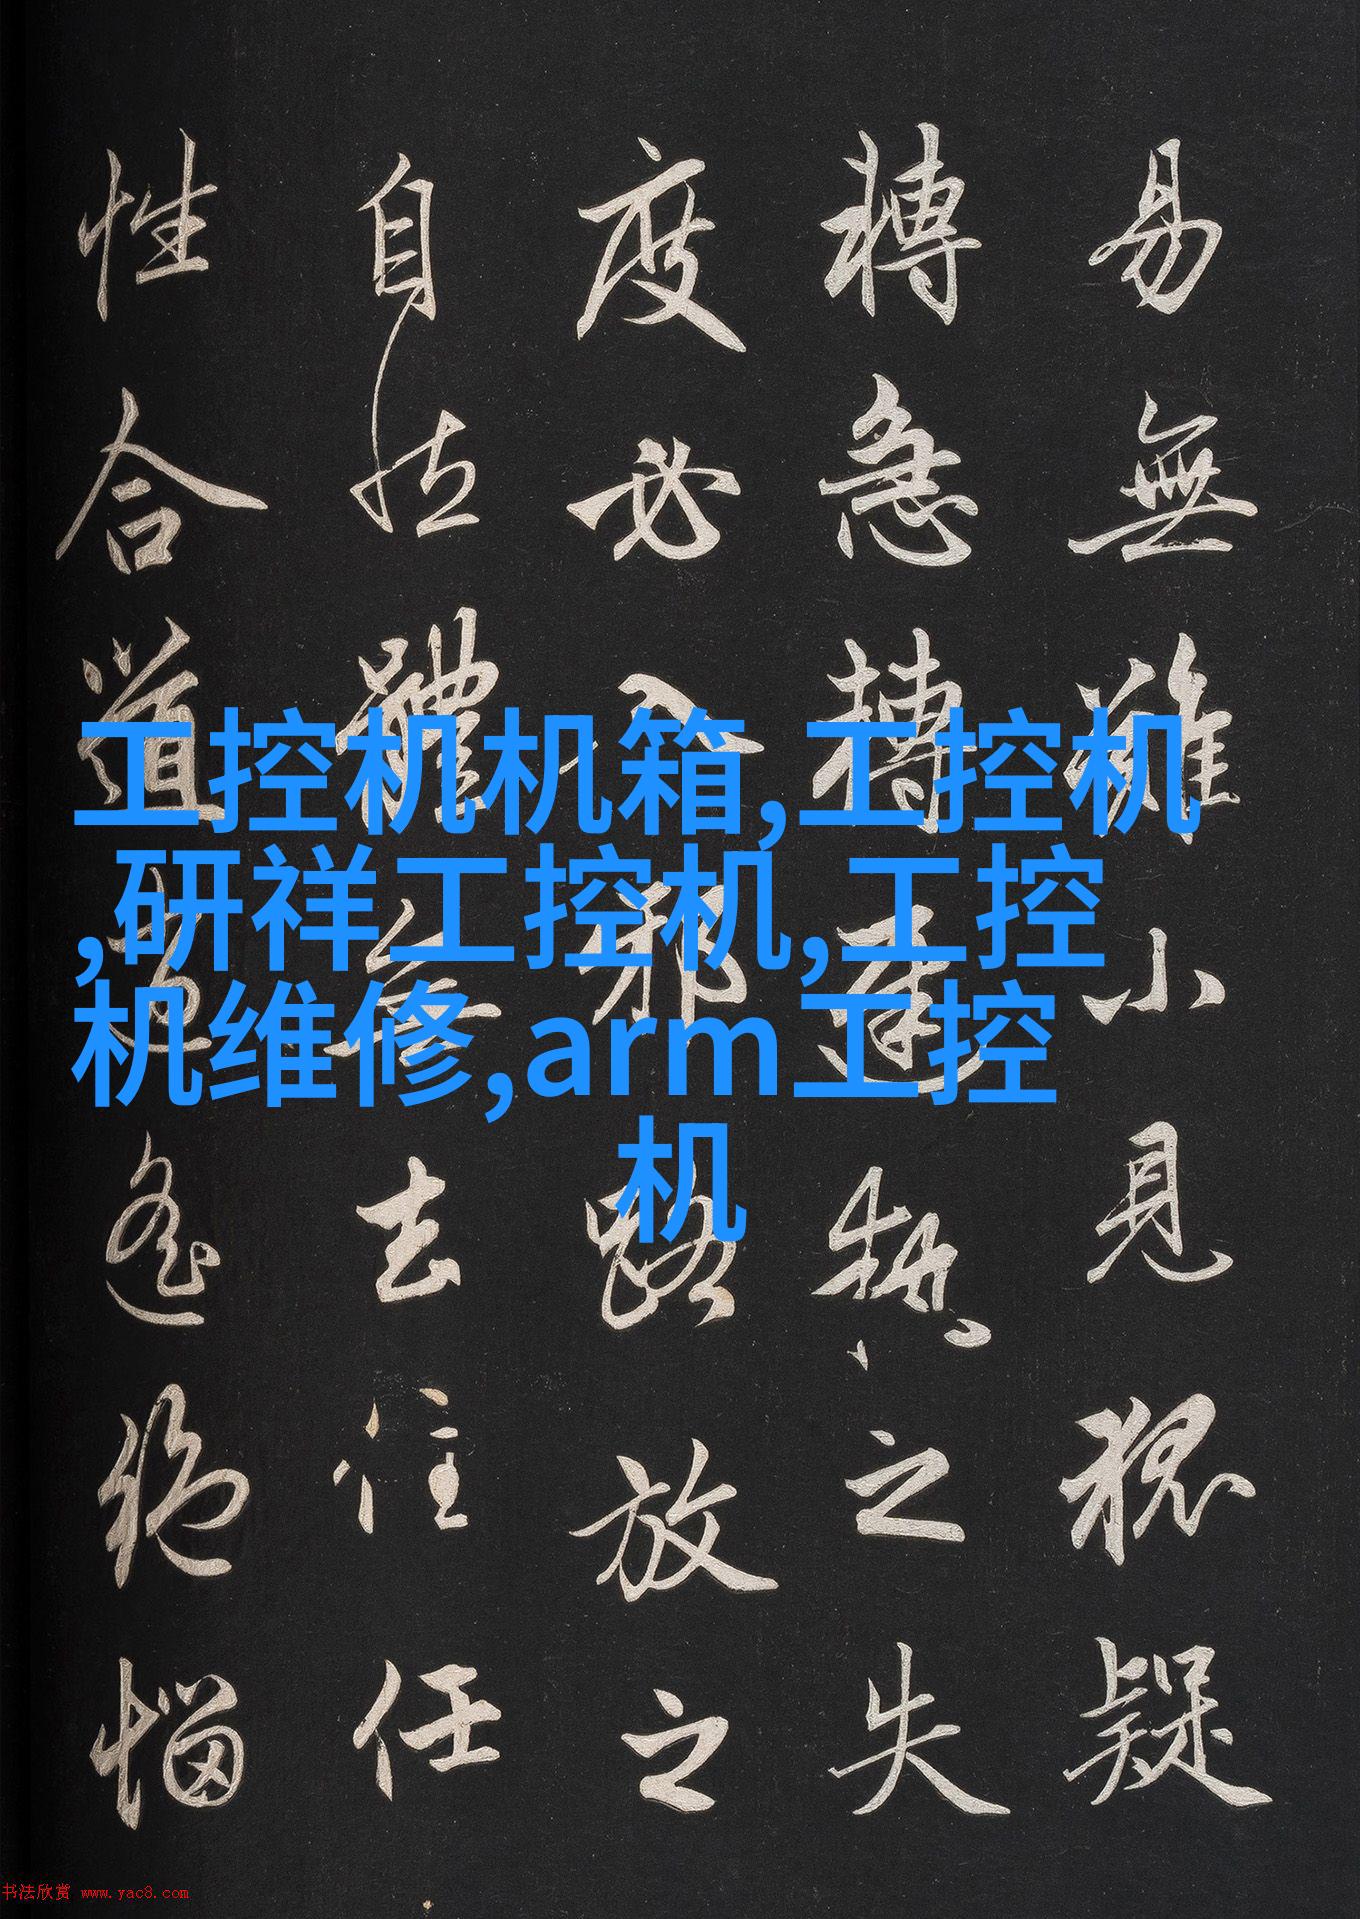 易無難小見狐疑
轉急轉遲執之失
度必入邪路放之
自然體無去住任
性合道逍遙絕惱
工控机机箱,工控机
,研祥工控机,工控
机维修,arm工控
机
书法欣赏 www.yac8.com